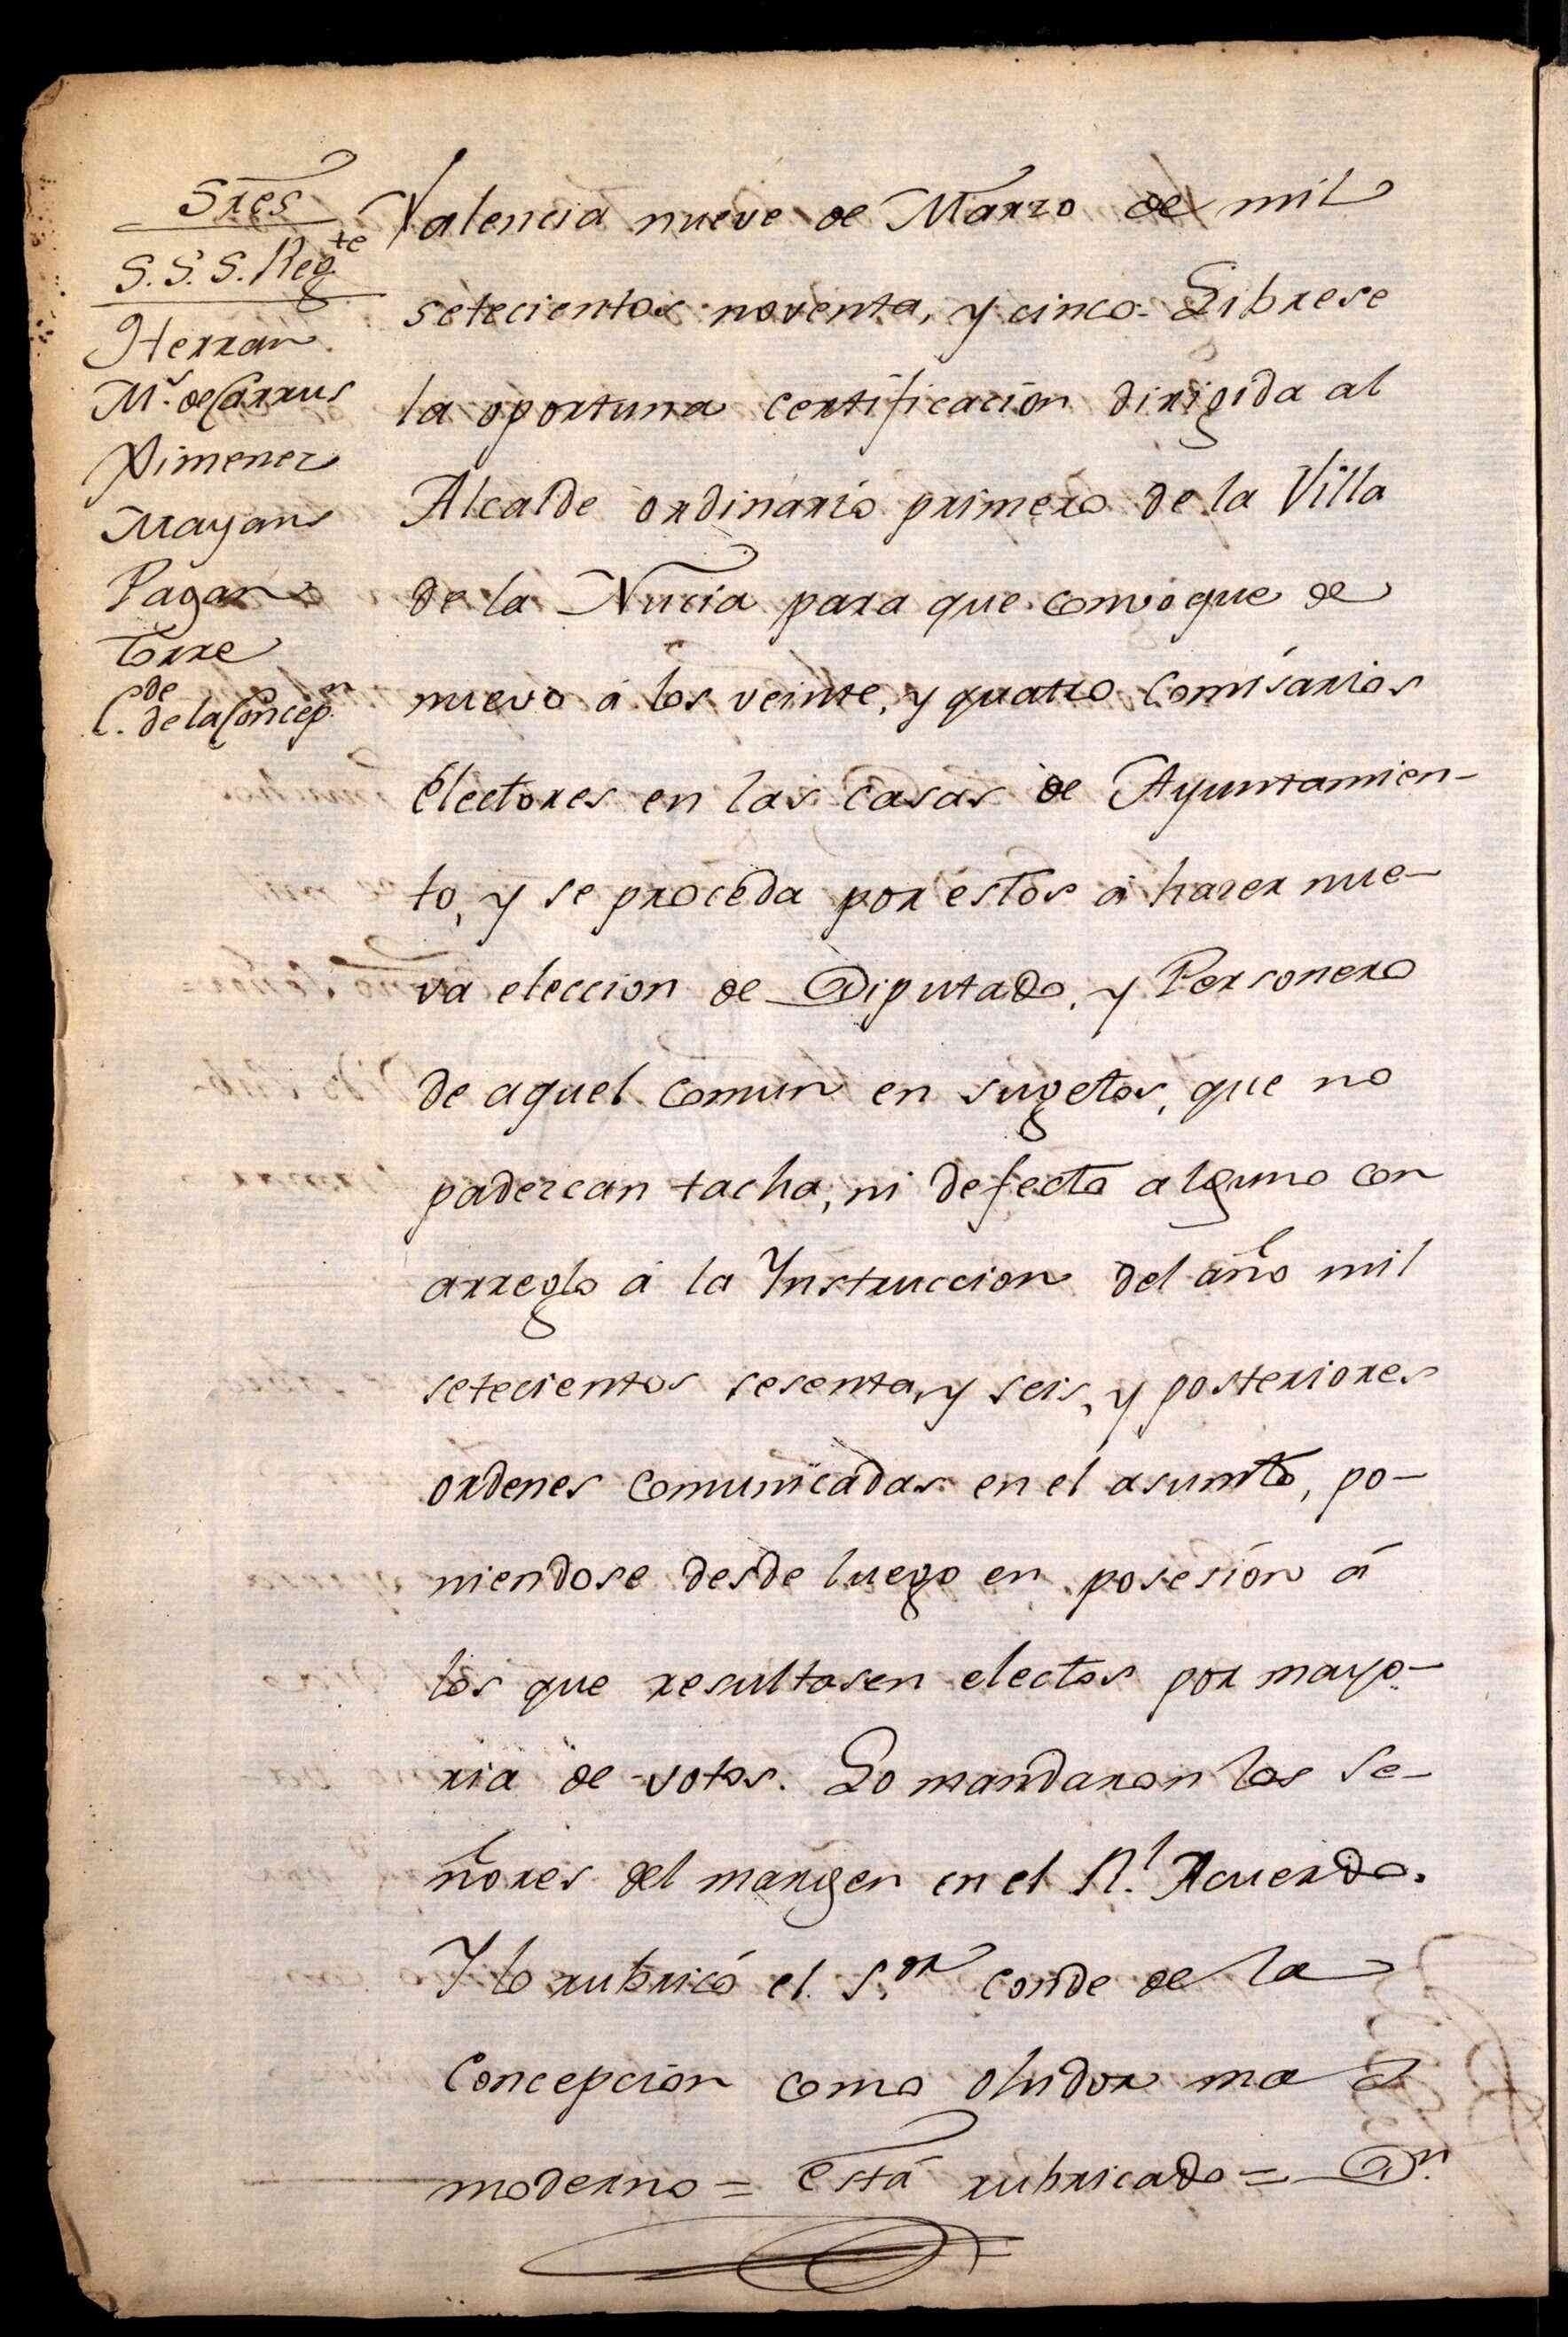 Sres
S.S.S. Reg.te
Herran
M.s de Carrus
Ximenez
Mayans
Pagan
Torre
C.de de la Concep.n
Valencia nueve de Marzo de mil
setecientos noventa, y cinco. Librese
la oportuna certificacion dirigida al
Alcalde ordinario primero de la Villa
de la Nucia para que convoque de
nuevo á los veinte, y quatro Comisarios
Electores en las casas de Ayuntamien-
to, y se proceda por estos á hazer nue-
va eleccion de Diputado, y Personero
de aquel comun en sugetos, que no
padezcan tacha, ni defecto alguno con
arreglo á la Instruccion del año mil
setecientos sesenta, y seis, y posteriores
ordenes comunicadas en el asunto, po-
niendose desde luego en posesion á
los que resultasen electos por mayo-
ria de votos. Lo mandaron los Se-
ñores del margen en el R.l Acuerdo.
Y lo rubricó el S.or Conde de la
Concepcion como ohidor mas
moderno = Está rubricado = D.n